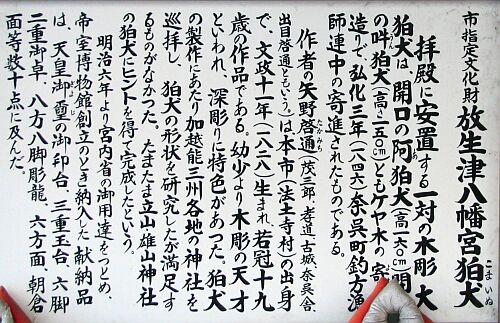 市指定文化財 放生津八幡宮狛犬
こまいぬ
拝殿に安置する一対の木彫大
狛犬は、開口の阿狛犬(高一六〇cm)
の吽狛犬(高さ一五〇cm)ともケヤ木の寄
造りで弘化三年(一八四六)奈呉町釣方漁
師連中の寄進されたものである。
作者の矢野啓通(茂三郎、孝道、古城、奈呉舎、
出目啓通ともいう。)は本市(法土寺村)の出身
で、文政十一年(一八二八)生まれ、若冠十九
歳の作品である。幼少より木彫の天才
といわれ、深彫りに特色があった。狛犬
の製作にあたり加越能三州各地の神社を
巡拝し、狛犬の形状を研究したが満足す
るものがなかった。たまたま立山雄山神社
の狛犬にヒントを得て完成したという。
明治六年より宮内省の御用達をつとめ、
帝室博物館創立のとき納入した献納品
は、天皇御璽の御印台、三重玉台、六脚
二重御卓、八方八脚彫龍、六方面、朝倉
面等数十点に及んだ。